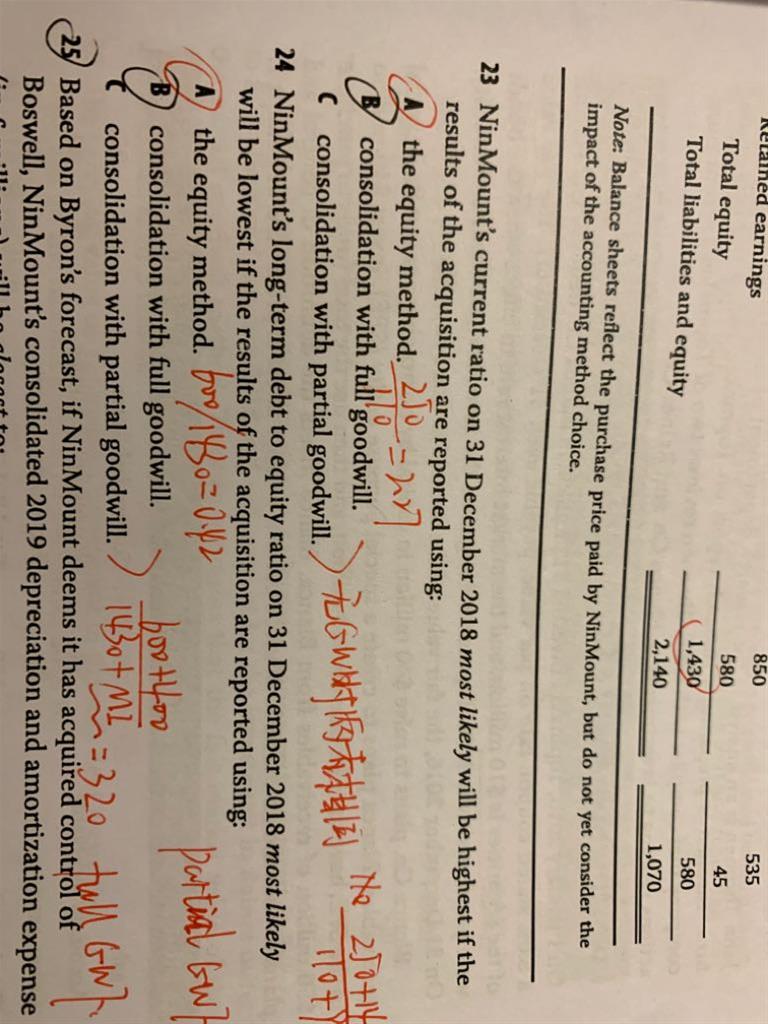 Retained earnings 850 535
Total equity 580 45
Total liabilities and equity 1,430 580
2,140 1,070
Note: Balance sheets reflect the purchase price paid by NinMount, but do not yet consider the
impact of the accounting method choice.
23 NinMount's current ratio on 31 December 2018 most likely will be highest if the
results of the acquisition are reported using:
A the equity method. 250/110 = 2.27
B consolidation with full goodwill.
C consolidation with partial goodwill.
24 NinMount's long-term debt to equity ratio on 31 December 2018 most likely
will be lowest if the results of the acquisition are reported using:
A the equity method. 600/1430=0.42
B consolidation with full goodwill. partial GW
C consolidation with partial goodwill. 600+400/1430+MI = 320 full GW
25 Based on Byron's forecast, if NinMount deems it has acquired control of
Boswell, NinMount's consolidated 2019 depreciation and amortization expense